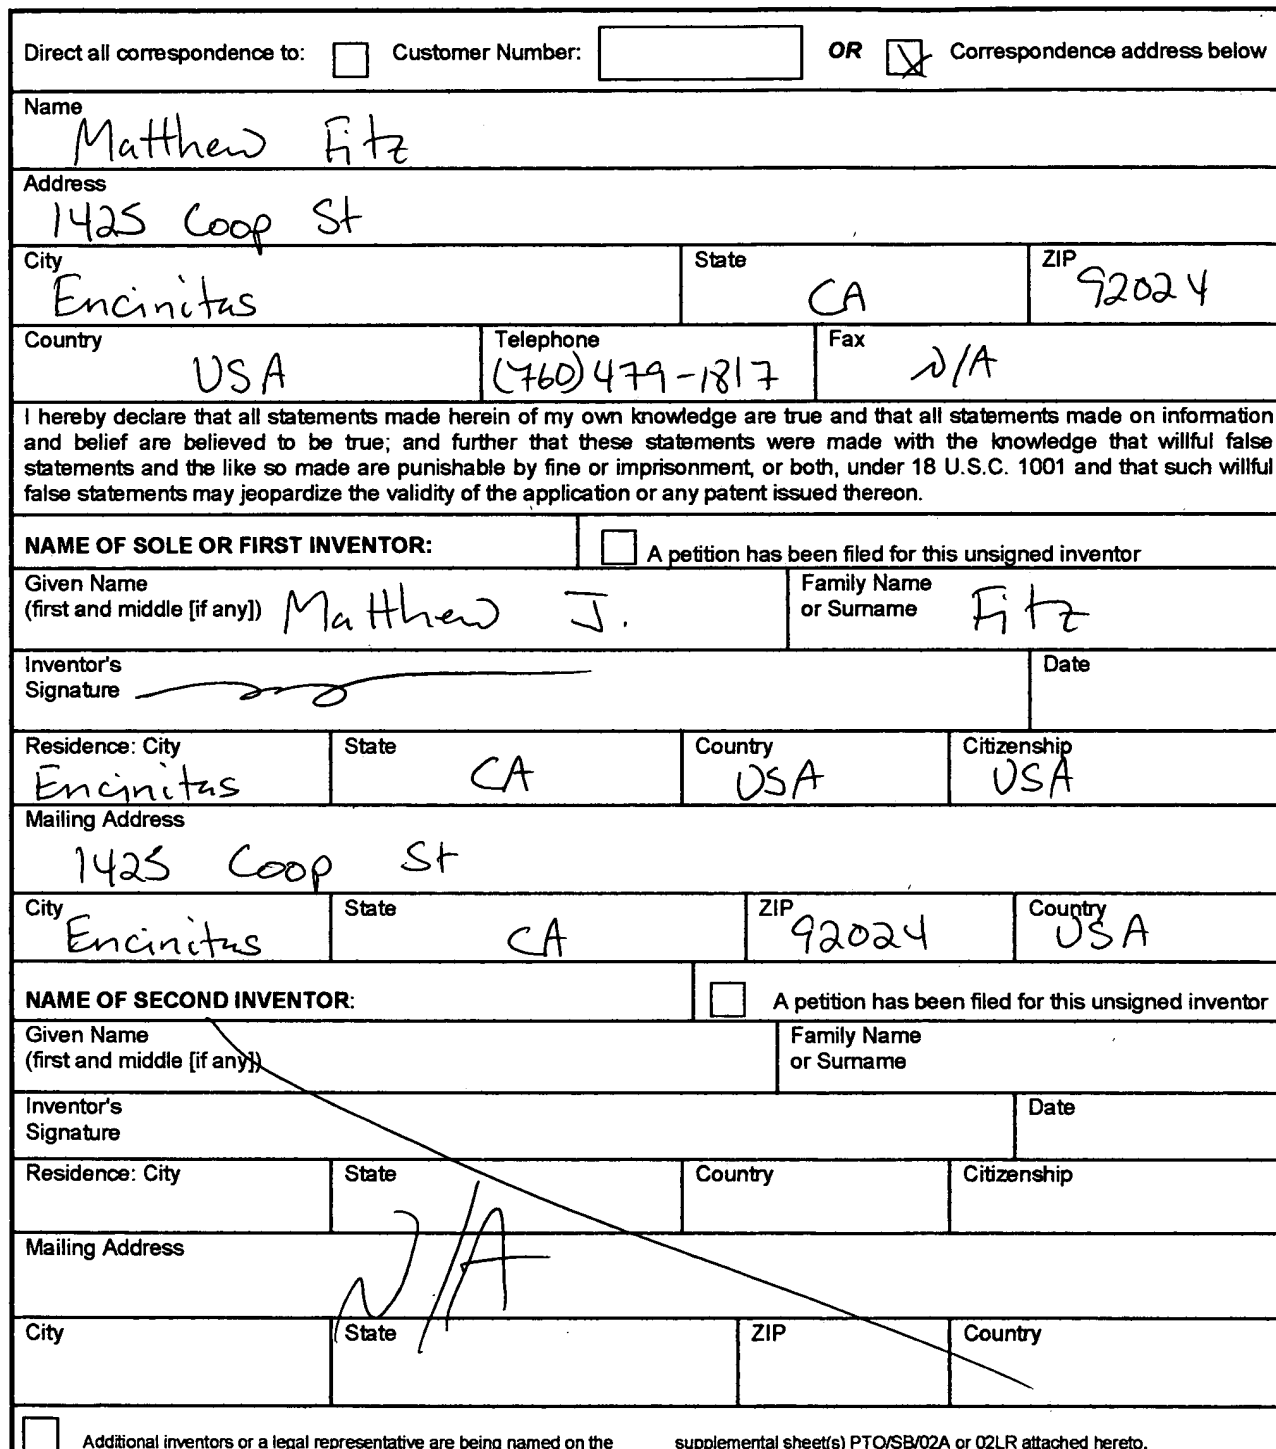 Direct all correspondence to: Customer Number: OR Correspondence address below
Name
Matthew Fitz
Address
1425 Coop St
City State ZIP
Encinitas CA 92024
Country Telephone Fax
USA (760)479-1817 N/A
I hereby declare that all statements made herein of my own knowledge are true and that all statements made on information
and belief are believed to be true; and further that these statements were made with the knowledge that willful false
statements and the like so made are punishable by fine or imprisonment, or both, under 18 U.S.C. 1001 and that such willful
false statements may jeopardize the validity of the application or any patent issued thereon.
NAME OF SOLE OR FIRST INVENTOR: A petition has been filed for this unsigned inventor
Given Name Family Name
(first and middle [if any]) Matthew J. or Surname Fitz
Inventor's Date
Signature
Residence: City State Country Citizenship
Encinitas CA USA USA
Mailing Address
1425 Coop St
City State ZIP Country
Encinitas CA 92024 USA
NAME OF SECOND INVENTOR: A petition has been filed for this unsigned inventor
Given Name Family Name
(first and middle [if any]) or Surname
Inventor's Date
Signature
Residence: City State Country Citizenship
N/A
Mailing Address
City State ZIP Country
Additional inventors or a legal representative are being named on the supplemental sheet(s) PTO/SB/02A or 02LR attached hereto.